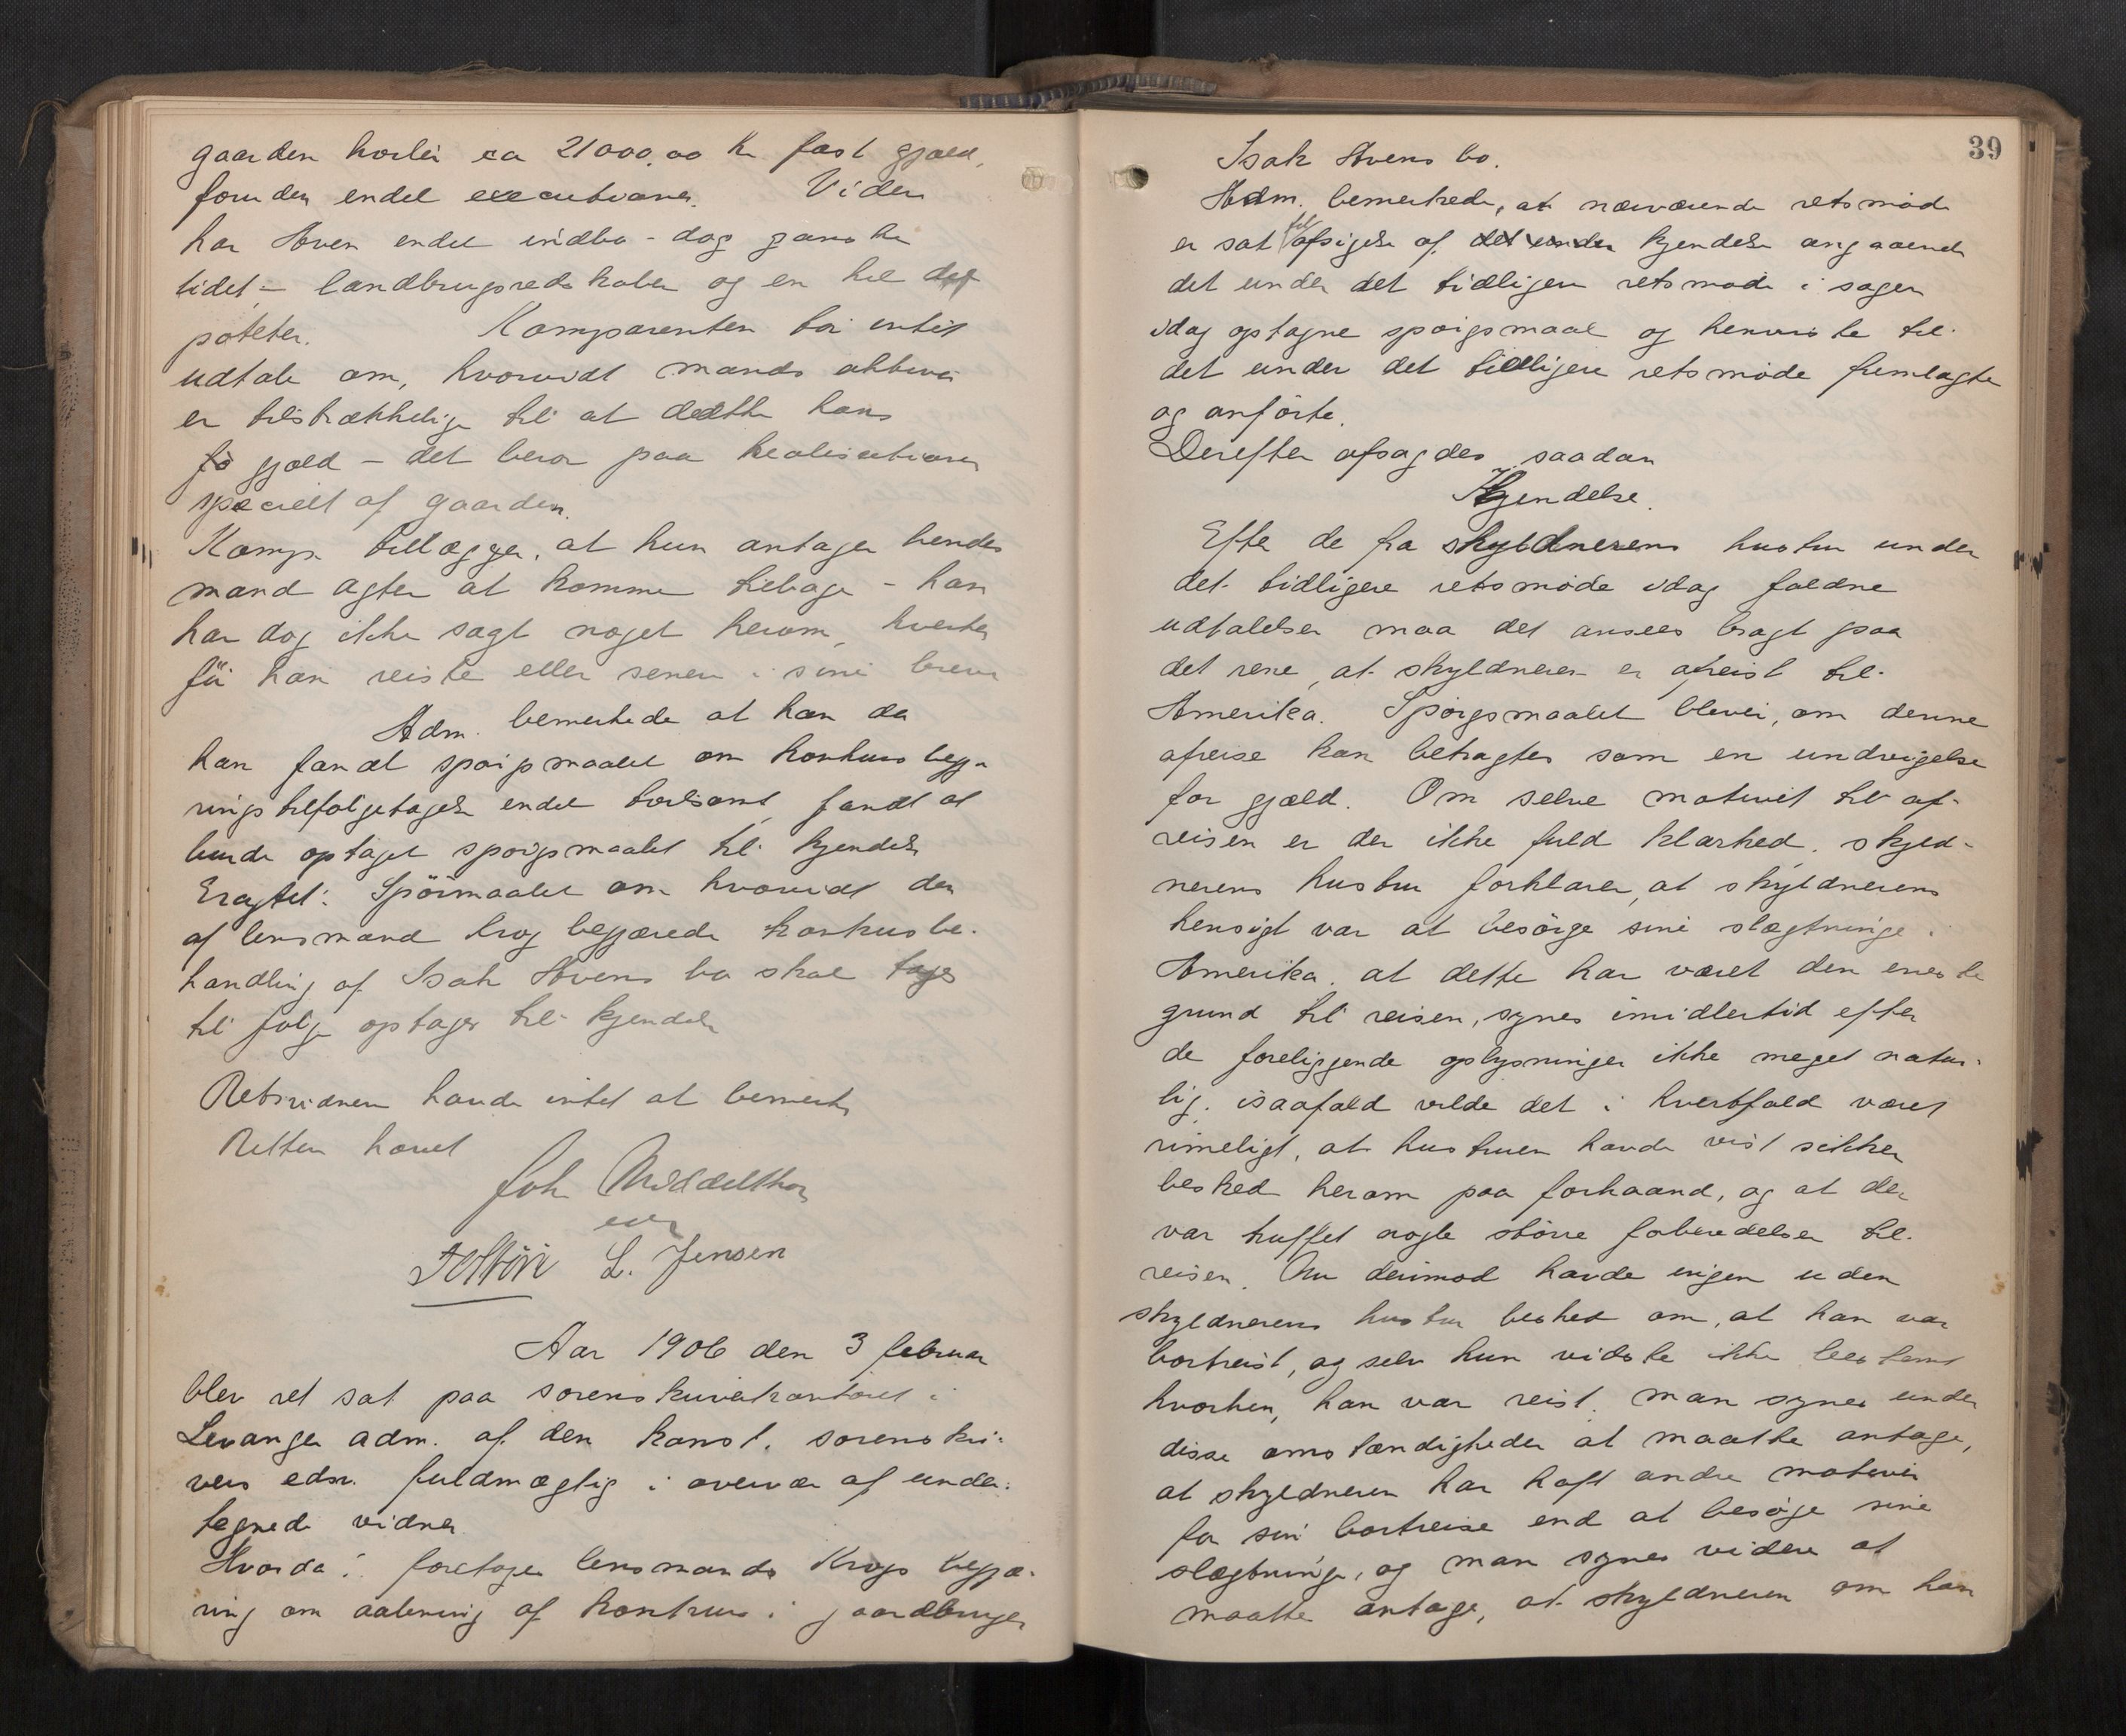 gaarden hviler ca 21000,00 kr fast gjæld,
foruden endel executioner. Viden
har Aven endel indbo - dog ganske
lidet - landbrugsredskaber og en hel del
poteter. Komparenten tør intet
udtale om, hvorvidt mands aktiver
er tilstrækkelige til at dække hans
gjæld - det beror paa realisationen
specielt af gaarden.
Komp. tillægger, at hun antager hendes
mand agter at komme tilbage - han
har dog ikke sagt noget herom, hverken
før han reiste eller senere i sine breve
Adm. bemerkede at han da
han fandt spørgsmaalet om konkursbegjæ-
rings tilfølgetagelse endel tvilsomt, fandt at
burde optaget spørgsmaalet til kjendelse
Eragtet: Spörsmaalet om hvorvidt den
af lensmand Krog begjærede konkursbe-
handling af Isak Avens bo skal tages
til følge optages til kjendelse
Retsvidnene havde intet at bemerke
Retten hævet
Joh Middelthon
L. Jensen
Aar 1906 den 3 februar
blev ret sat paa sorenskriverkontoret i
Levanger adm. af den konst. sorenskri-
vers edsv. fuldmægtig i overvær af under-
tegnede vidner
Hvorda: foretages lensmands Krogs begjæ-
ring om aabning af konkurs i gaardbruger
39
Isak Avens bo.
Adm. bemerkede, at nærværende retsmøde
er sat til afsigelse af det under kjendelse angaaende
det under det tidligere retsmøde i sagen
idag optagne spørgsmaal og henviste til
det under det tidligere retsmøde fremlagte
og anførte.
Derefter afsagdes saadan
Kjendelse.
Efter de fra skyldnerens hustru under
det tidligere retsmøde idag faldne
udtalelser maa det ansees bragt paa
det rene, at skyldneren er afreist til
Amerika. Spørgsmaalet bliver, om denne
afreise kan betragtes som en undvigelse
for gjæld. Om selve motivet til af-
reisen er der ikke fuld klarhed. skyld-
nerens hustru forklarer, at skyldnerens
hensigt var at besörge sine slægtninge i
Amerika. at dette har været den eneste
grund til reisen, synes imidlertid efter
de foreliggende oplysninger ikke meget natur-
lig. isaafald vilde det i hvertfald været
rimeligt, at hustruen havde vist sikker
besked herom paa forhaand, og at der
var truffet nogle større forberedelser til
reisen. Nu derimod havde ingen uden
skyldnerens hustru besked om, at han var
bortreist, og selv hun vidste ikke bestemt
hvorhen, han var reist. man synes under
disse omstændigheder at maatte antage,
at skyldneren har haft andre motiver
for sin bortreise end at besøge sine
slægtninge, og man synes videre at
maatte antage, at skyldneren om han